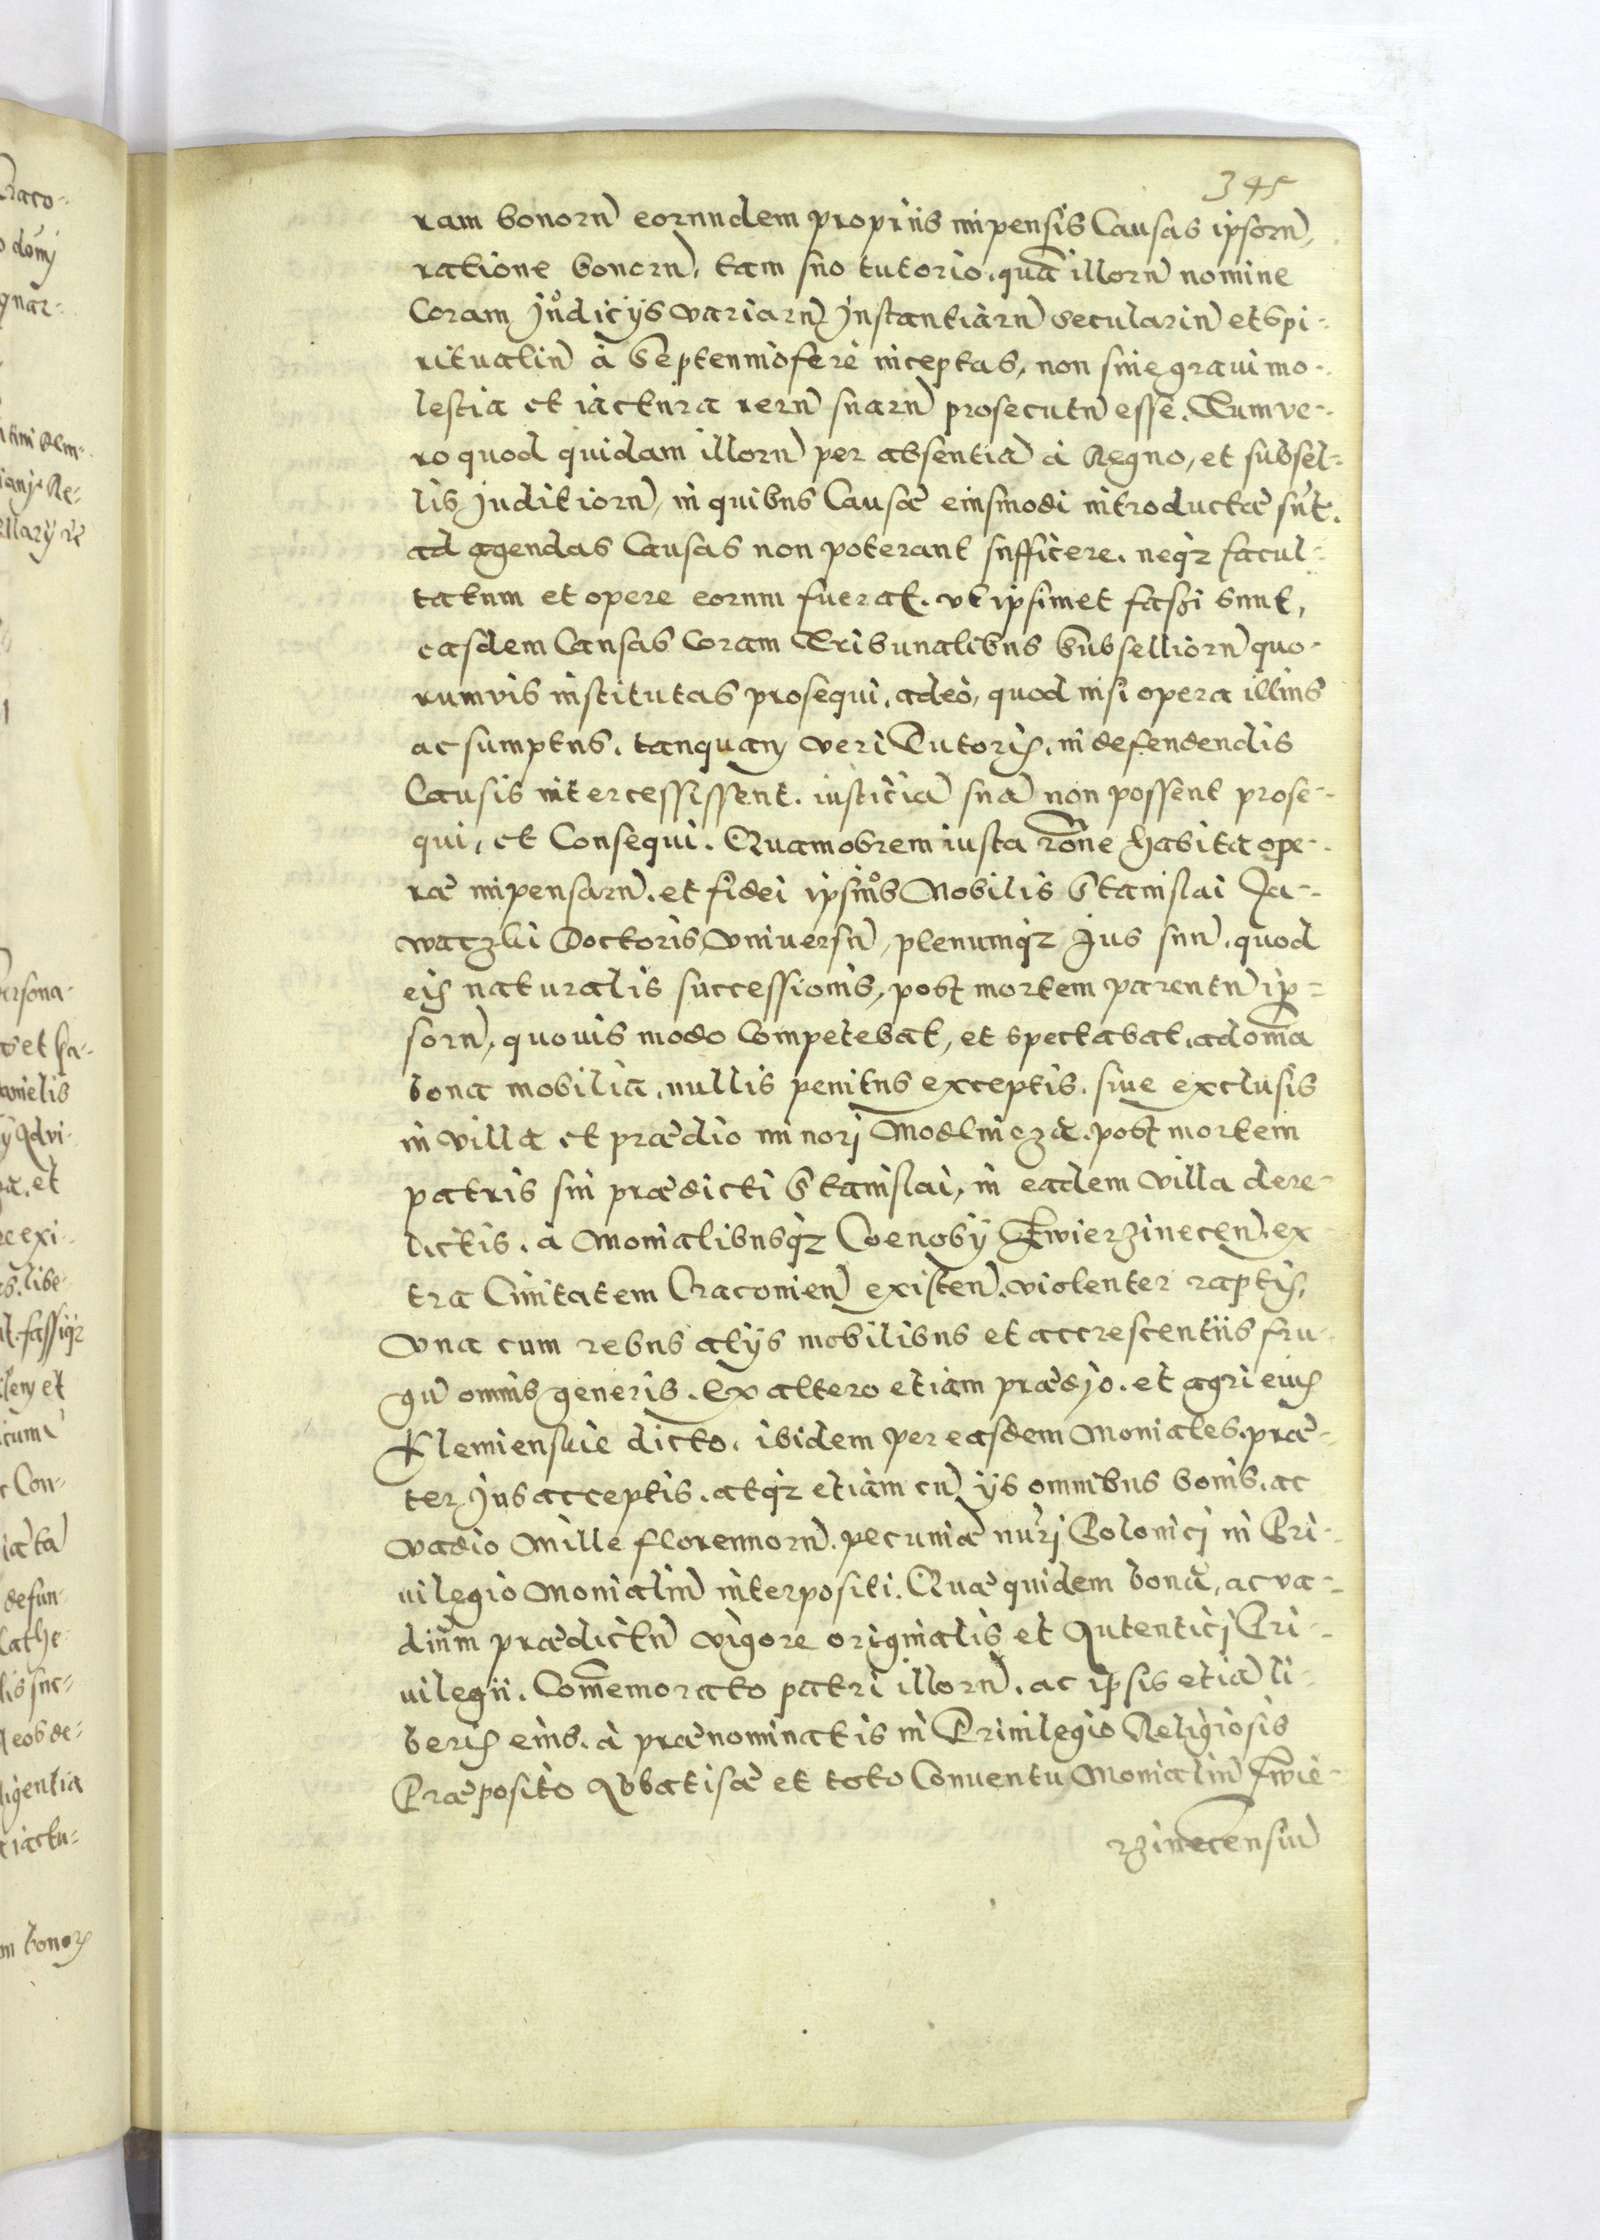 345
ram bonorũ eorundem propriis impensis Causas ipsorũ,
ratione bonorũ, tam suo tutorio, quã illorũ nomine
Coram Judicijs variarũ Instantiarũ secularium̃ et Spi-
ritualiũ à Septennio ferè inceptas, non sine graui mo-
lestia et iactura rerũ suarũ prosecutũ esse. Tum ve-
ro quod quidam illorũ per absentiã à Regno, et subsel-
lis Juditiorũ, in quibus Causæ eiusmodi introductæ sũt,
ad agendas Causas non poterant sufficere, neqz facul-
tatum et opere eorum fuerat, vt ipsimet fassi sunt,
easdem Causas Coram Tribunalibus Subselliorũ quo-
rumvis institutas prosequi, adeò, quod nisi opera illius
ac sumptus, tanquam veri Tutoris, in defendendis
Causis intercessissent, iusticiã suã non possent prose-
qui, et Consequi. Quamobrem iusta rõne habita ope-
ræ impensarũ, et fidei ipsius Mobilis Stanislai Ja-
waczki Doctoris, vniuersũ, plenumqz Jus suũ, quod
eis naturalis successionis, post mortem parentũ ip-
sorũ, quouis modo Competebat, et spectabat, ad om̃a
bona mobilia, nullis penitus exceptis, siue exclusis
in villa et prædio minori Modlnicza, post mortem
patris sui prædicti Stanislai, in eadem villa dere-
lictis, à Monialibusqz Coenobij Zwierzinecen̄, ex
tra Ciuitatem Cracouien̄ existen̄, violenter raptis,
Vna cum rebus alijs mobilibus et accrescentiis fru-
gũ omnis generis. Ex altero etiam prædijo, et agri eius
Klemienswie dicto, ibidem per easdem Moniales, præ-
ter Jus acceptis, atqz etiam cũ ijs omnibus bonis, ac
vadio Mille florennorũ, pecuniæ nũri Polonici in Pri-
uilegio Monialiũ interpositi. Quæ quidem bona, ac va-
dium prædictũ vigore originalis et Autentici Pri-
uilegii, Com̃emorato patri illorũ, ac ipsis etiã li-
beris eius, à prænominatis in Priuilegio Religiosis
Præposito Abbatisæ et toto Conuentu Monialiũ Zwie-
rzinecensiũ